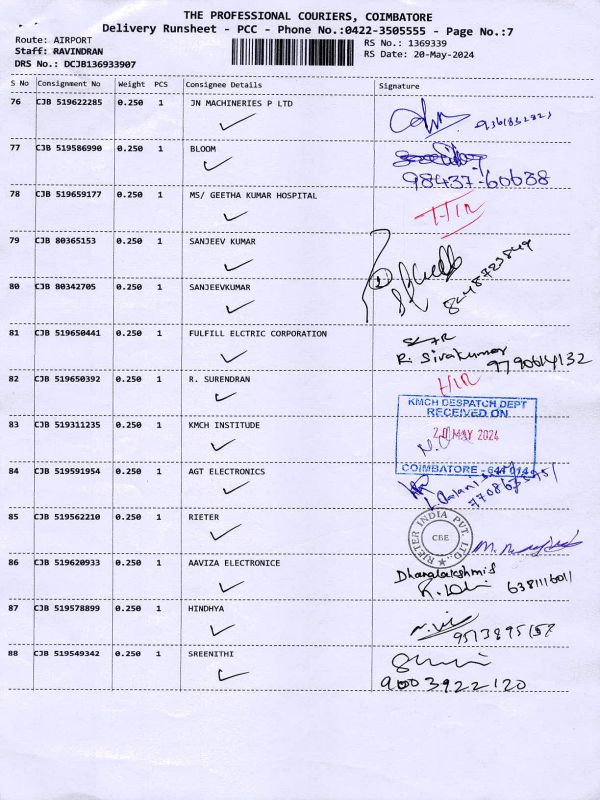 THE PROFESSIONAL COURIERS, COIMBATORE
Delivery Runsheet - PCC - Phone No.:0422-3505555 - Page No.:7
Route: AIRPORT
Staff: RAVINDRAN
DRS No.: DCJB136933907
RS No.: 1369339
RS Date: 20-May-2024
S No Consignment No Weight PCS Consignee Details Signature
76 CJB 519622285 0.250 1 JN MACHINERIES P LTD
77 CJB 519586990 0.250 1 BLOOM
98437-60688
78 CJB 519659177 0.250 1 MS/ GEETHA KUMAR HOSPITAL
79 CJB 80365153 0.250 1 SANJEEV KUMAR
8248723849
80 CJB 80342705 0.250 1 SANJEEVKUMAR
81 CJB 519650441 0.250 1 FULFILL ELCTRIC CORPORATION
R. Sivakumar
9790614132
82 CJB 519650392 0.250 1 R. SURENDRAN
KMCH DESPATCH DEPT
RECEIVED ON
83 CJB 519311235 0.250 1 KMCH INSTITUDE
20 MAY 2024
COIMBATORE - 641 014
84 CJB 519591954 0.250 1 AGT ELECTRONICS
85 CJB 519562210 0.250 1 RIETER
RIETER INDIA PVT. LTD.
CBE
86 CJB 519620933 0.250 1 AAVIZA ELECTRONICE
Dhanalakshmi
6381116011
87 CJB 519578899 0.250 1 HINDHYA
88 CJB 519549342 0.250 1 SREENITHI
9003922120